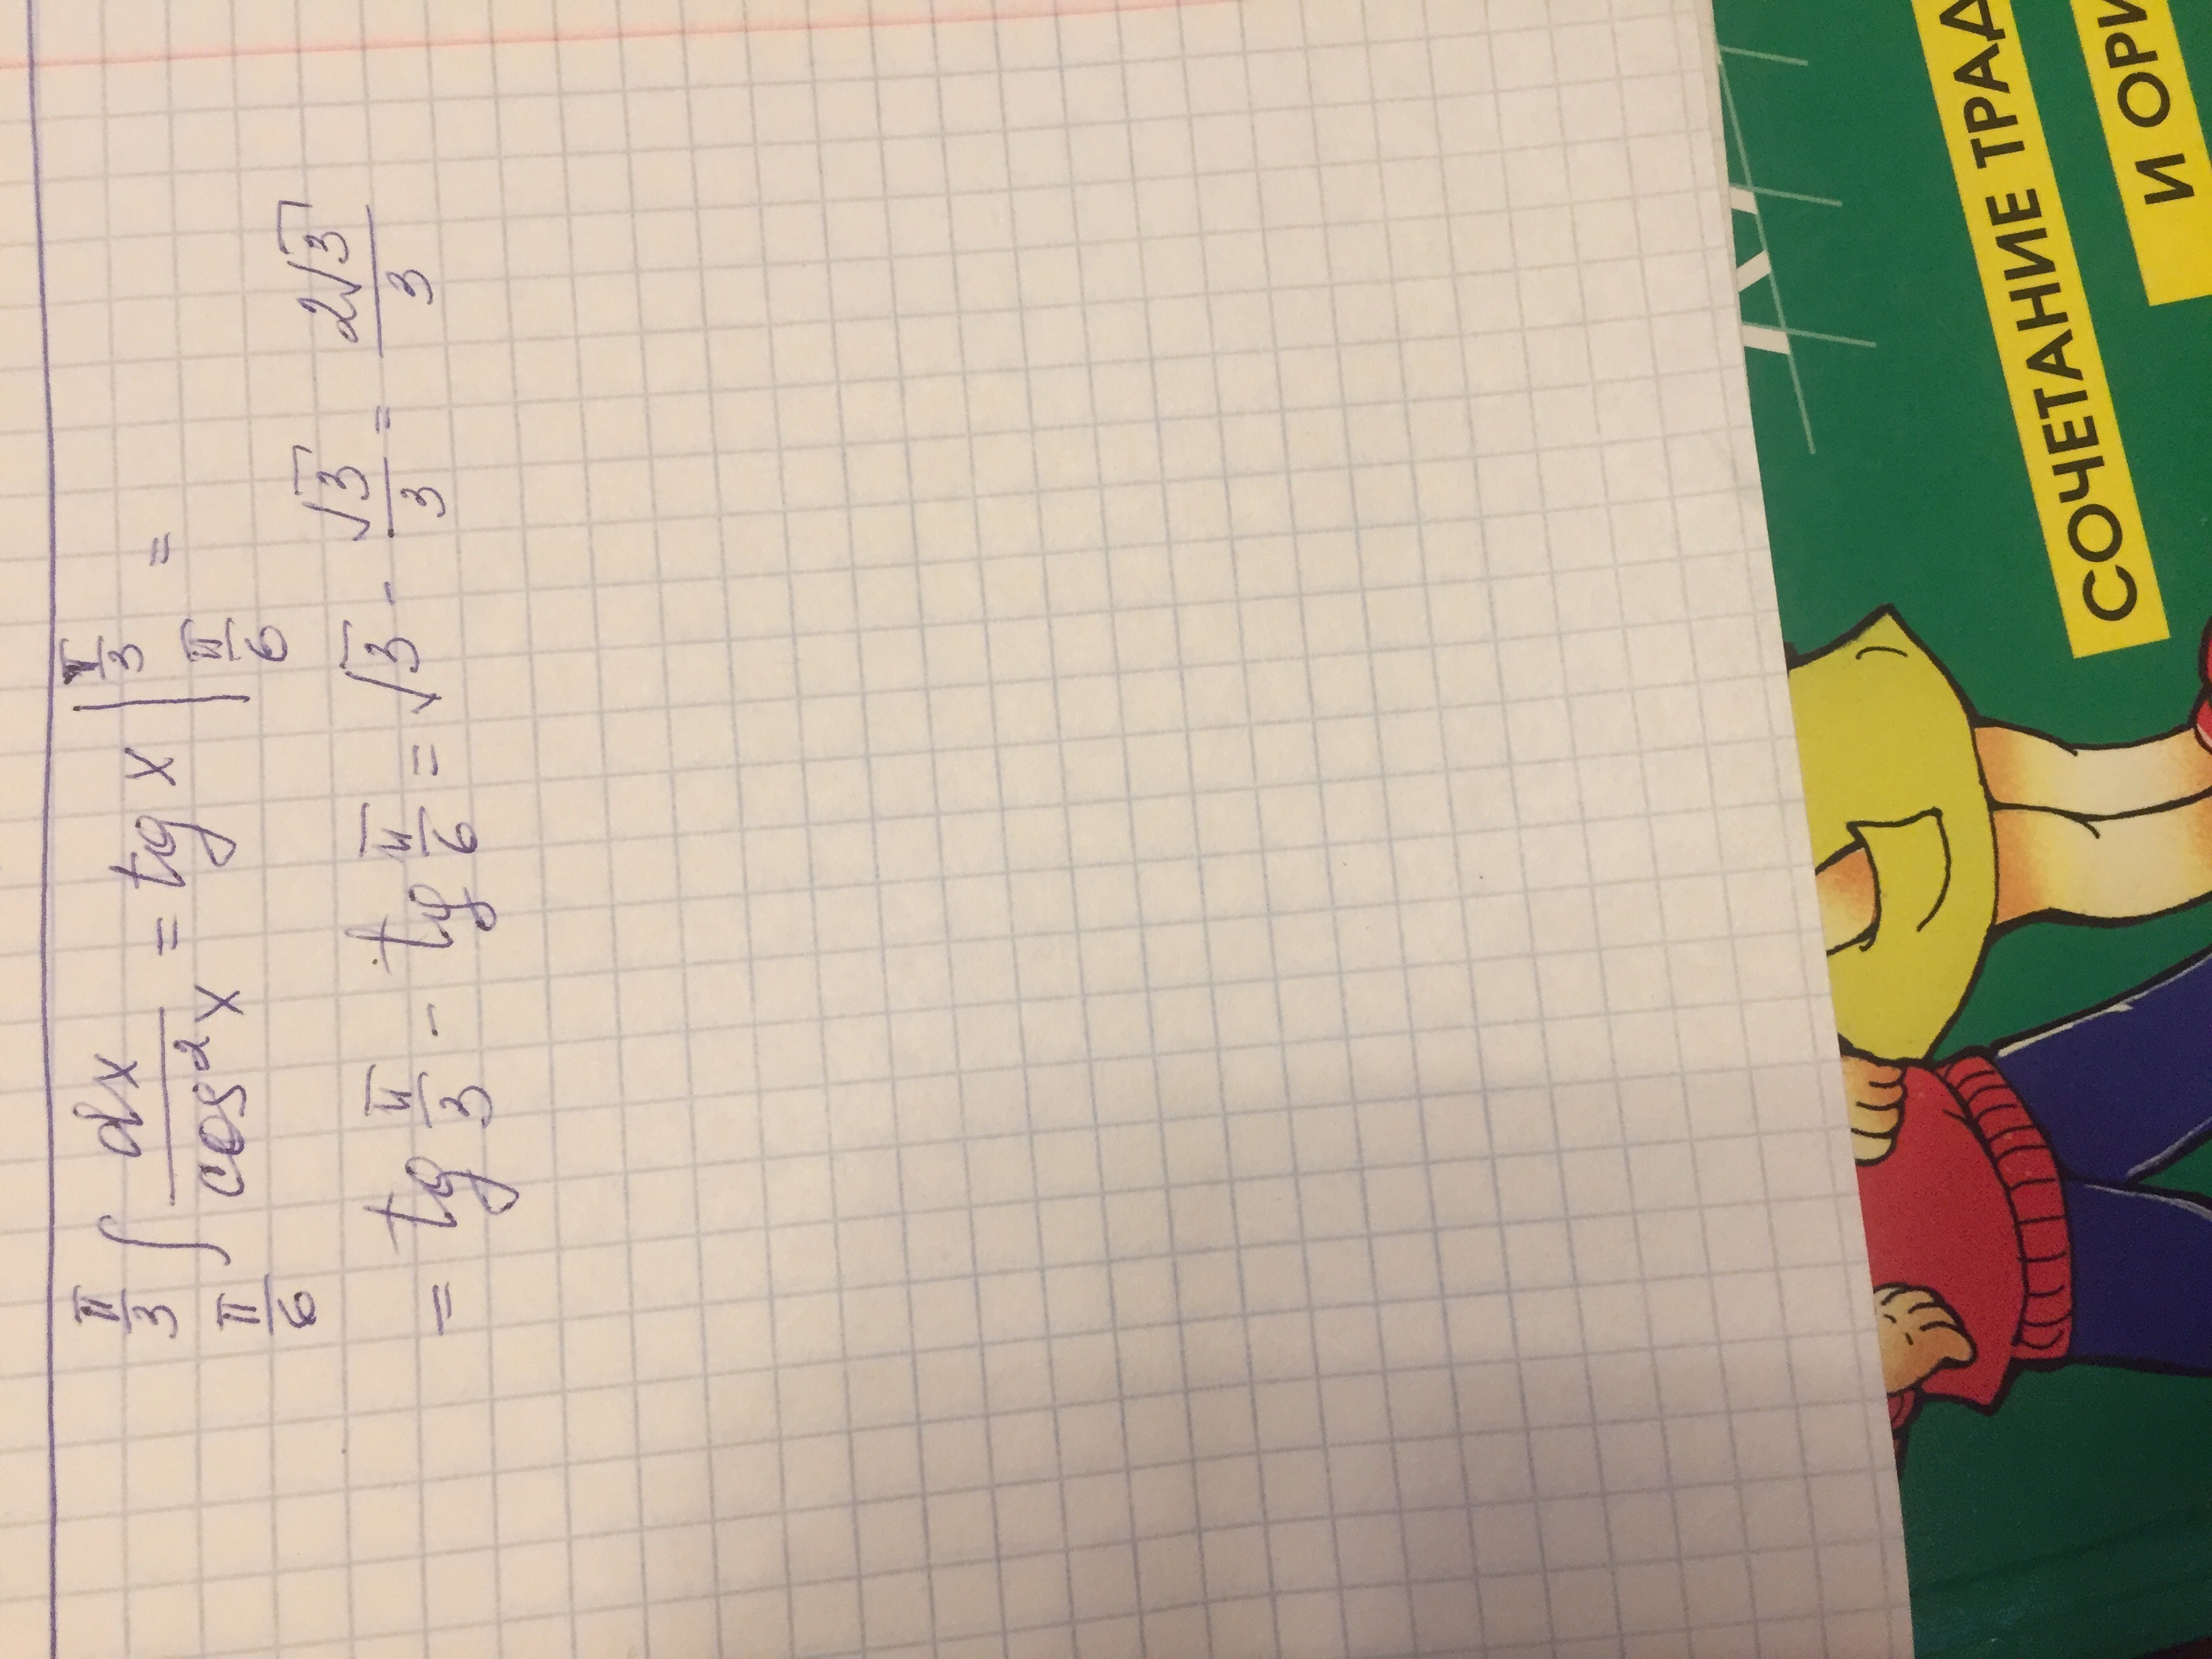 ∫_{π/6}^{π/3} dx/cos²x = tg x |_{π/6}^{π/3} =
= tg π/3 - tg π/6 = √3 - √3/3 = 2√3/3
СОЧЕТАНИЕ ТРАД
И ОРИ